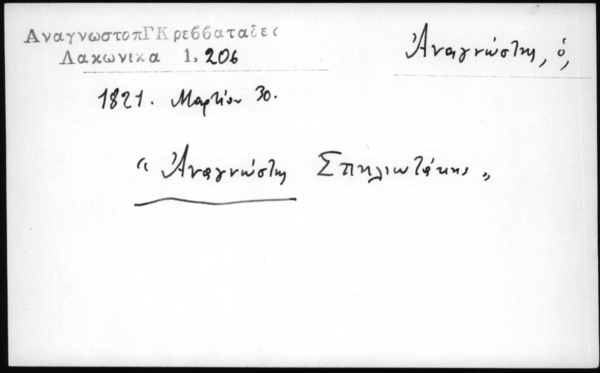 ΑναγνωστοπΓΚρεββαταδες
Λακωνικα 1, 206
Ἀναγνώστης, ὁ,
1821. Μαρτίου 30.
“ Ἀναγνώστης Σπηλιωτάκης „